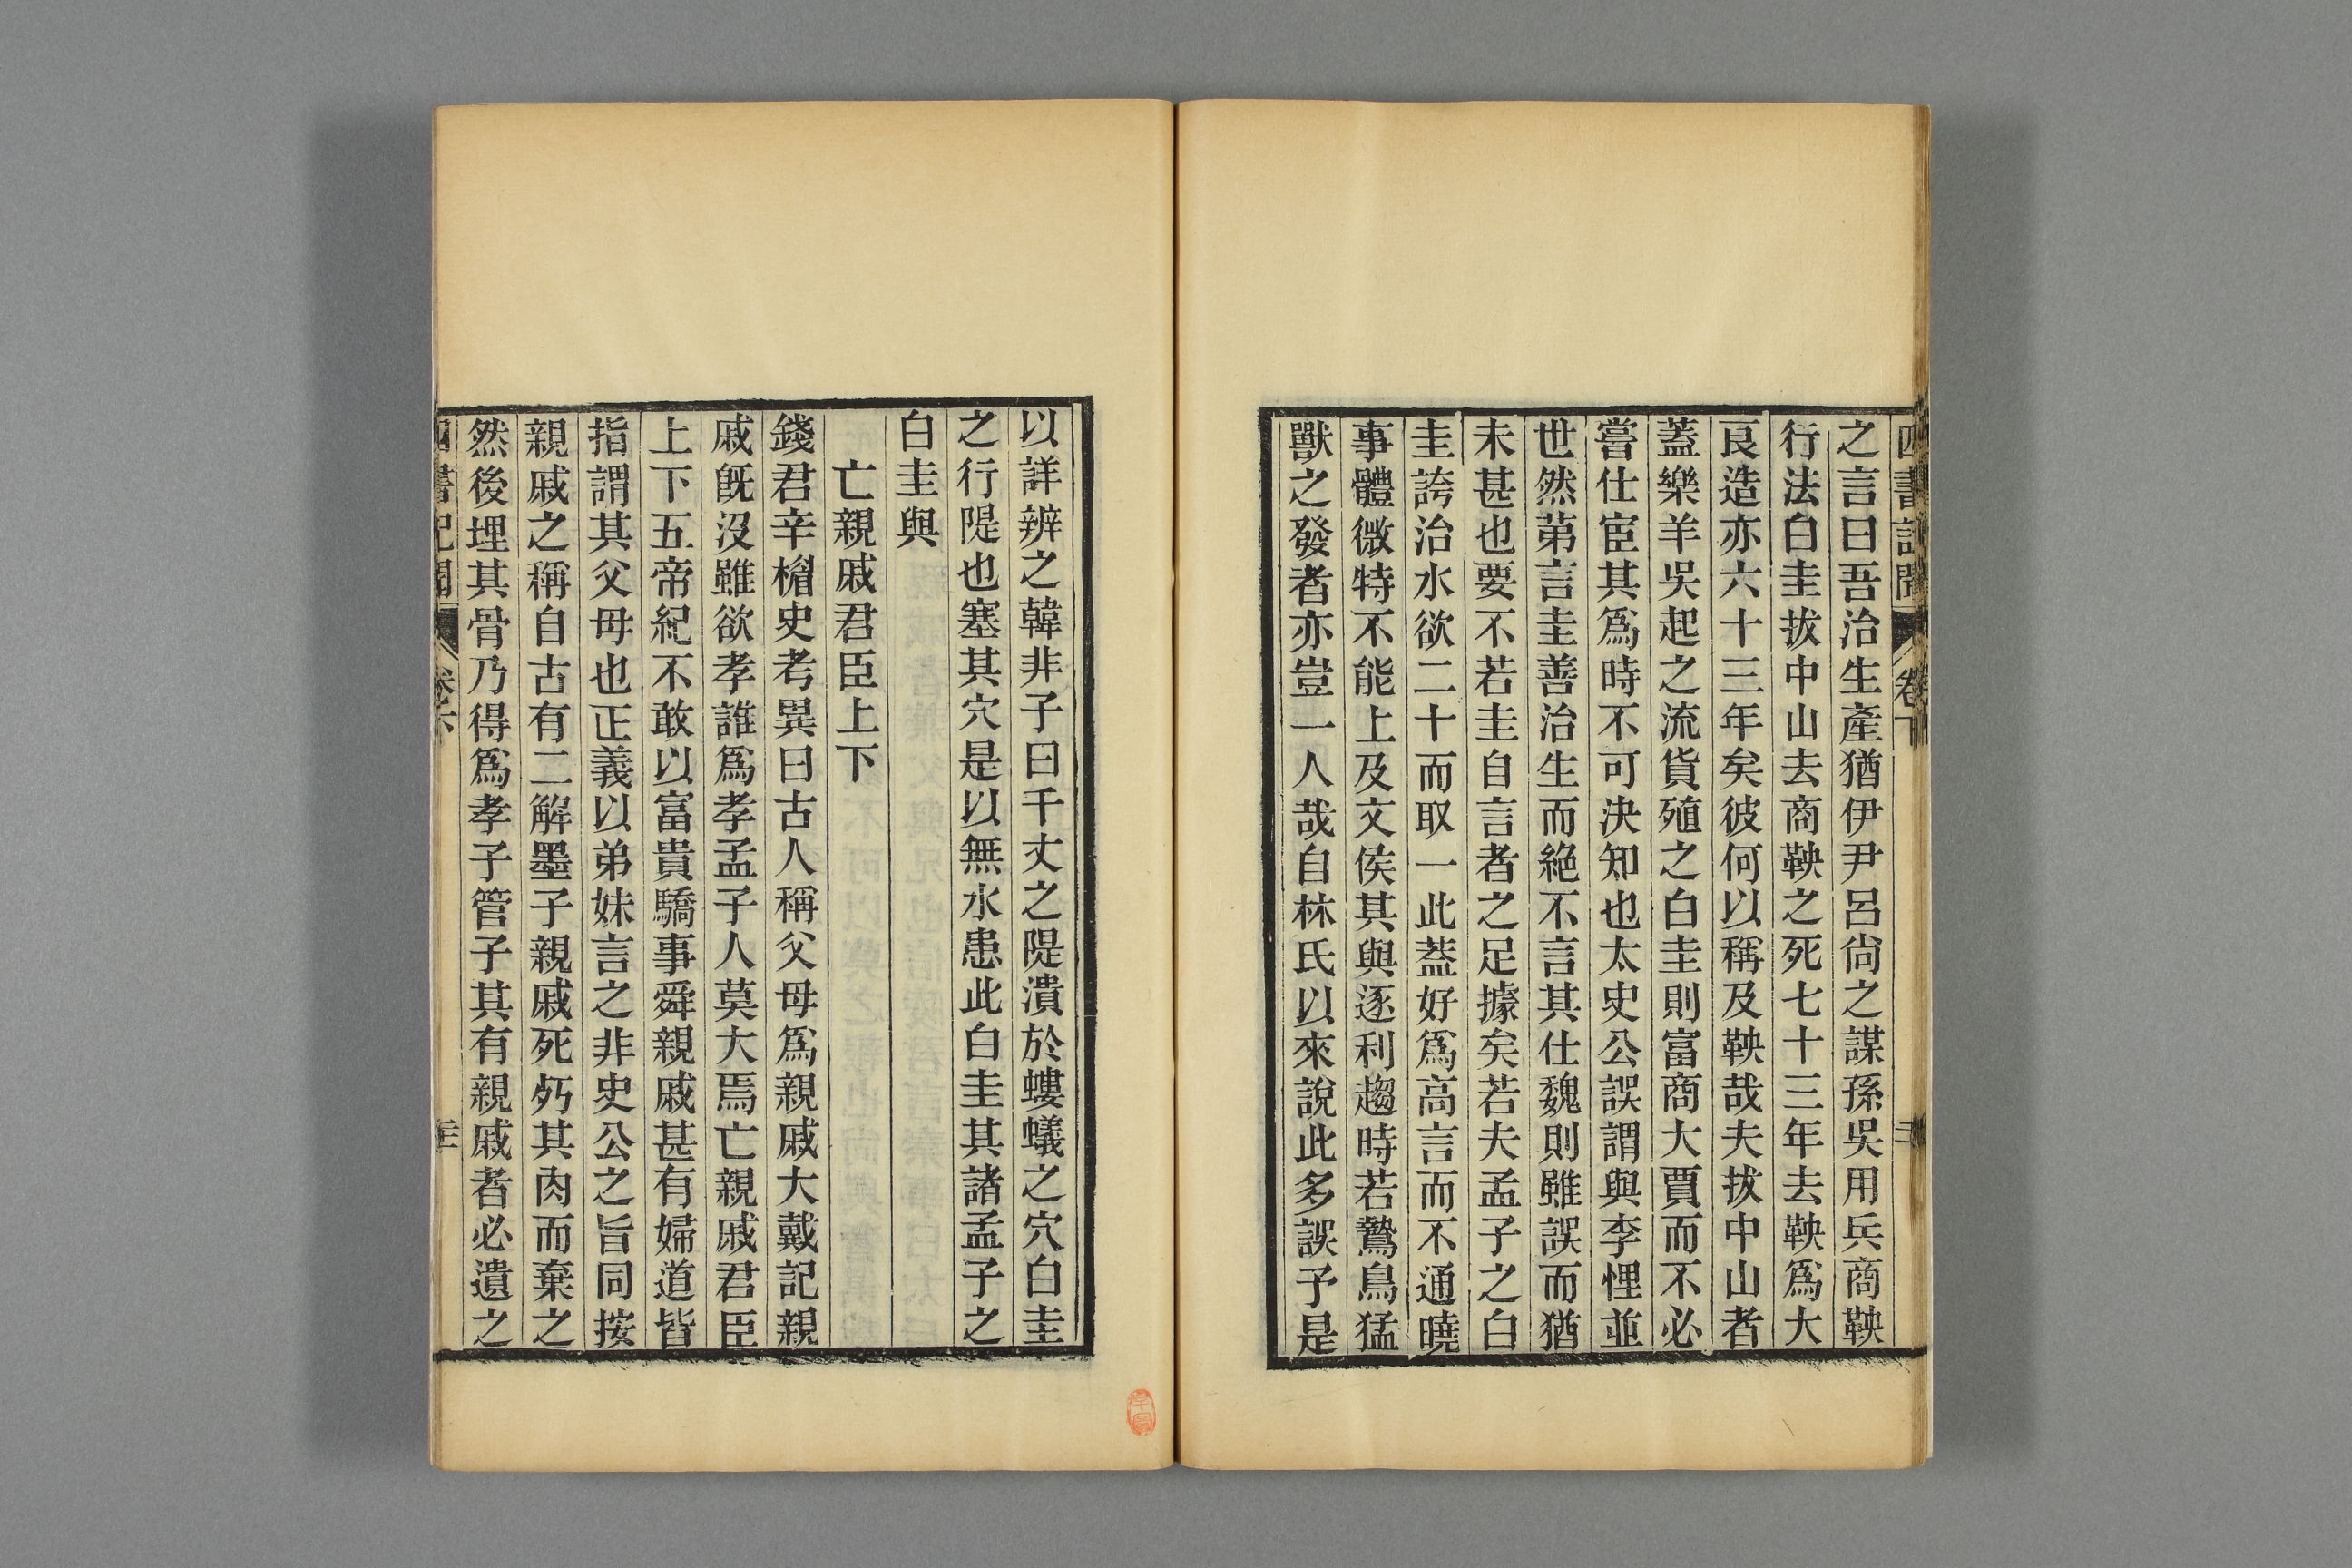 之言曰吾治生產猶伊尹呂尙之謀孫吳用兵商鞅
行法白圭拔中山去商鞅之死七十三年去鞅爲大
良造亦六十三年矣彼何以稱及鞅哉夫拔中山者
蓋樂羊吳起之流貨殖之白圭則富商大賈而不必
嘗仕宦其爲時不可決知也太史公誤謂與李悝並
世然苐言圭善治生而絶不言其仕魏則雖誤而猶
未甚也要不若圭自言者之足據矣若夫孟子之白
圭誇治水欲二十而取一此蓋好爲高言而不通曉
事體微特不能上及文侯其與逐利趨時若鷙鳥猛
獸之發者亦豈一人哉自林氏以來說此多誤予是
以詳辨之韓非子曰千丈之隄潰於螻蟻之穴白圭
之行隄也塞其穴是以無水患此白圭其諸孟子之
白圭與
亡親戚君臣上下
錢君辛楣史考異曰古人稱父母爲親戚大戴記親
戚旣沒雖欲孝誰爲孝孟子人莫大焉亡親戚君臣
上下五帝紀不敢以富貴驕事舜親戚甚有婦道皆
指謂其父母也正義以弟妹言之非史公之旨同按
親戚之稱自古有二解墨子親戚死㱙其肉而棄之
然後埋其骨乃得爲孝子管子其有親戚者必遺之